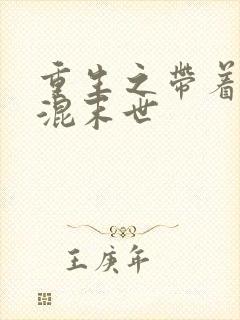 重生之带着
混末世
王庚年